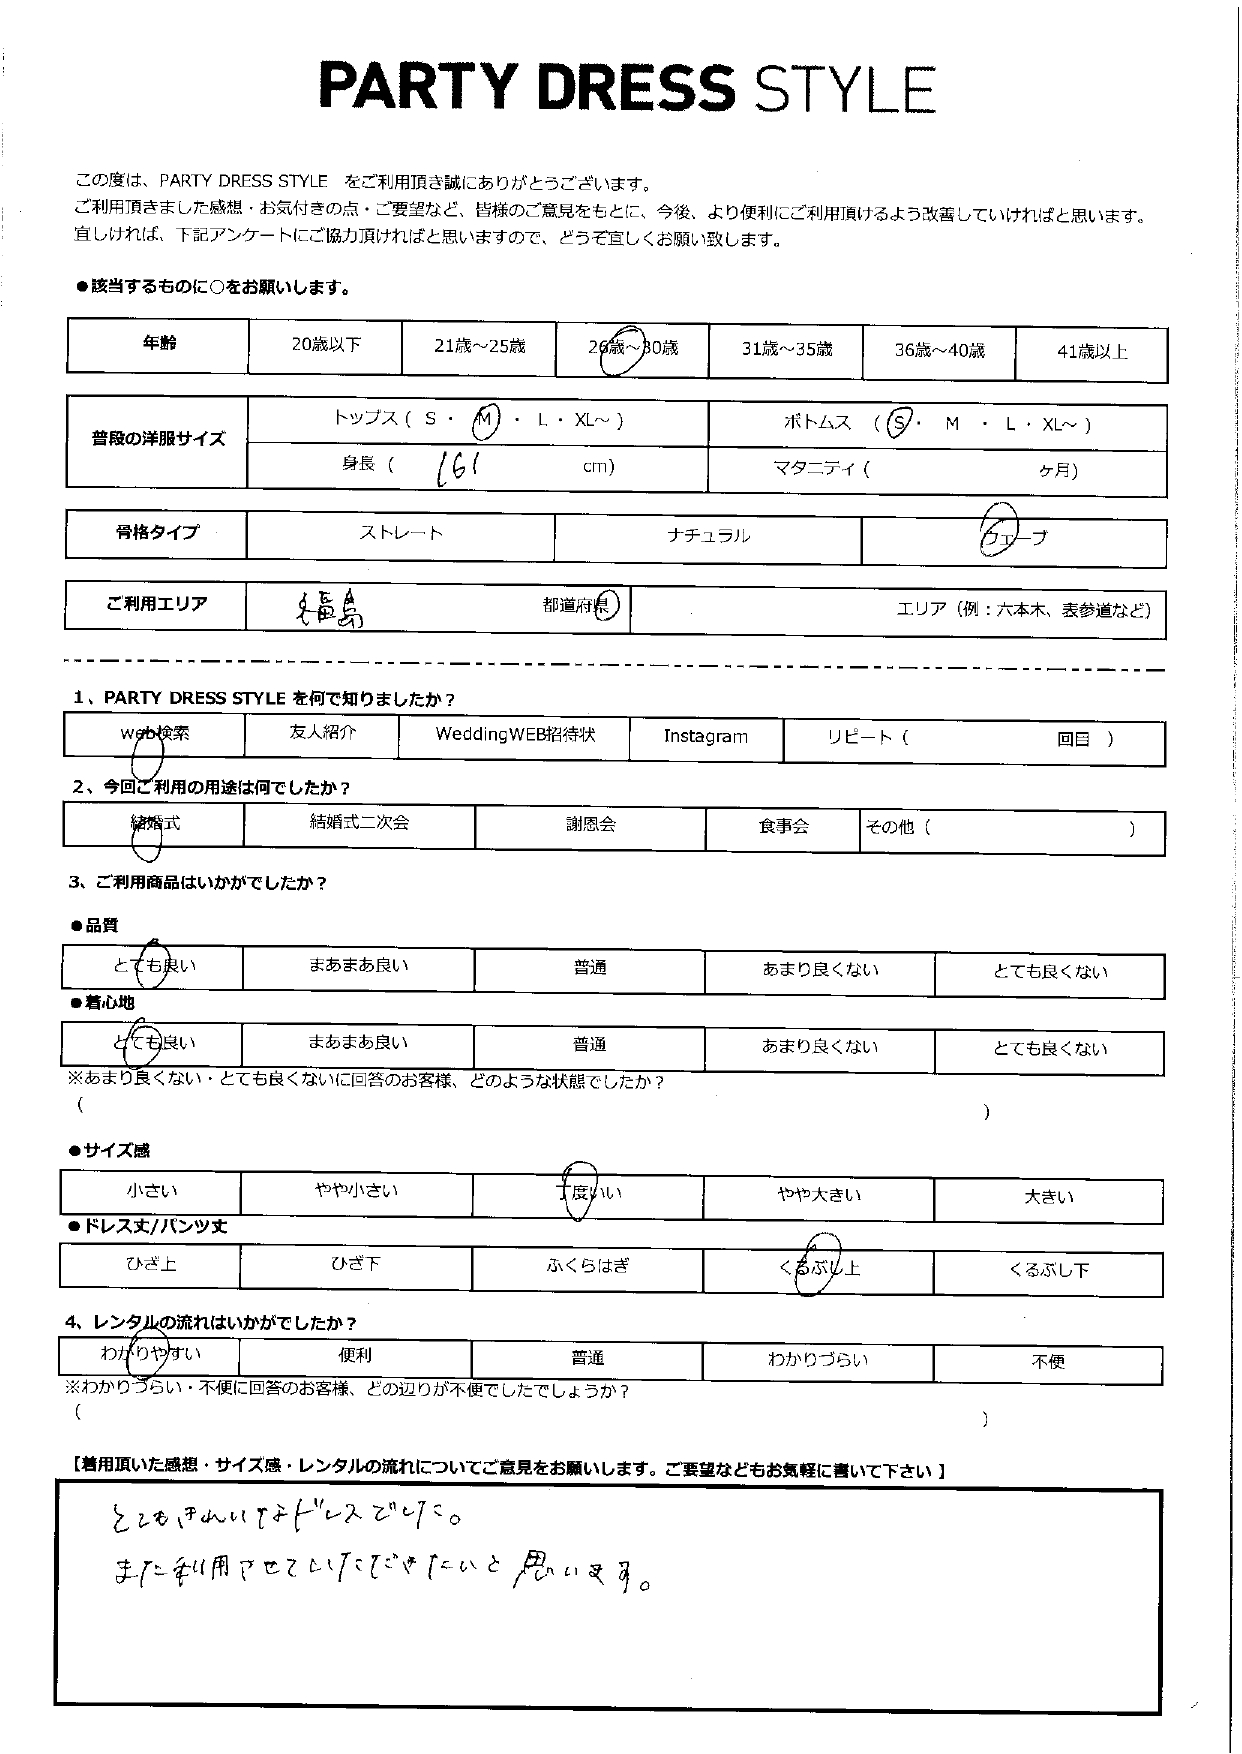 PARTY DRESS STYLE
この度は、PARTY DRESS STYLE をご利用頂き誠にありがとうございます。
ご利用頂きました感想・お気付きの点・ご要望など、皆様のご意見をもとに、今後、より便利にご利用頂けるよう改善していければと思います。
宜しければ、下記アンケートにご協力頂ければと思いますので、どうぞ宜しくお願い致します。
●該当するものに○をお願いします。
年齢 20歳以下 21歳～25歳 26歳～30歳 31歳～35歳 36歳～40歳 41歳以上
普段の洋服サイズ トップス ( S ・ M ・ L ・ XL～ ) ボトムス ( S ・ M ・ L ・ XL～ )
身長 ( 161 cm) マタニティ ( ヶ月)
骨格タイプ ストレート ナチュラル ウェーブ
ご利用エリア 福島 都道府県 エリア（例：六本木、表参道など）
1、PARTY DRESS STYLE を何で知りましたか？
web検索 友人紹介 WeddingWEB招待状 Instagram リピート ( 回目 )
2、今回ご利用の用途は何でしたか？
結婚式 結婚式二次会 謝恩会 食事会 その他 ( )
3、ご利用商品はいかがでしたか？
●品質
とても良い まあまあ良い 普通 あまり良くない とても良くない
●着心地
とても良い まあまあ良い 普通 あまり良くない とても良くない
※あまり良くない・とても良くないに回答のお客様、どのような状態でしたか？
( )
●サイズ感
小さい やや小さい 丁度いい やや大きい 大きい
●ドレス丈/パンツ丈
ひざ上 ひざ下 ふくらはぎ くるぶし上 くるぶし下
4、レンタルの流れはいかがでしたか？
わかりやすい 便利 普通 わかりづらい 不便
※わかりづらい・不便に回答のお客様、どの辺りが不便でしたでしょうか？
( )
【着用頂いた感想・サイズ感・レンタルの流れについてご意見をお願いします。ご要望などもお気軽に書いて下さい】
とてもきれいなドレスでした。
また利用させていただきたいと思います。